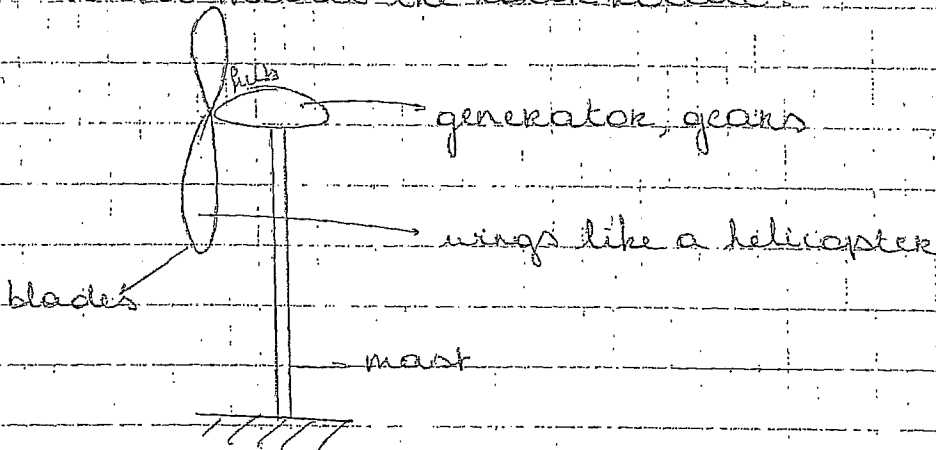 hub
generator, gears
wings like a helicopter
blades
mast